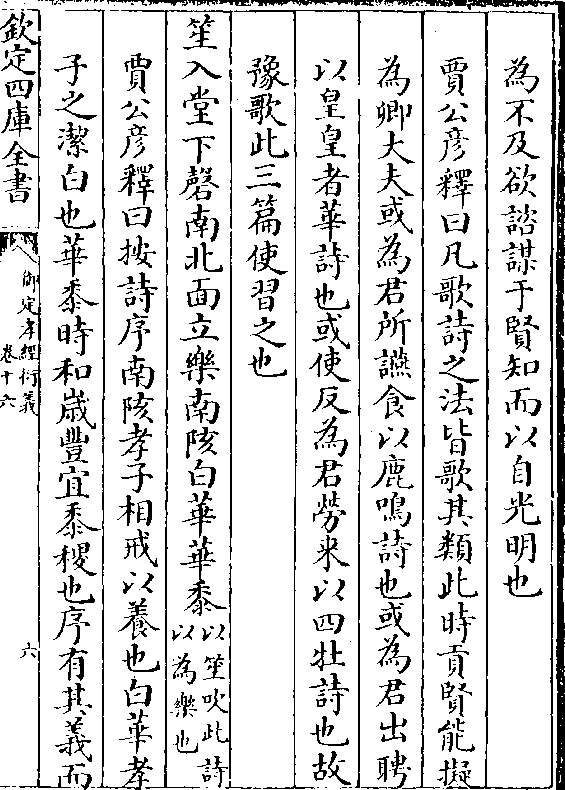 為不及欲諮謀于賢知而以自光明也
賈公彦釋曰凡歌詩之法皆歌其類此時貢賢能擬
為卿大夫或為君所讌食以鹿鳴詩也或為君出聘
以皇皇者華詩也或使反為君勞来以四牡詩也故
豫歌此三篇使習之也
笙入堂下磬南北面立樂南陔白華華黍以笙吹此詩以為樂也
賈公彦釋曰按詩序南陔孝子相戒以養也白華孝
子之潔白也華黍時和歲豐宜黍稷也序有其義而
欽定四庫全書
御定孝經衍義
卷十六
六